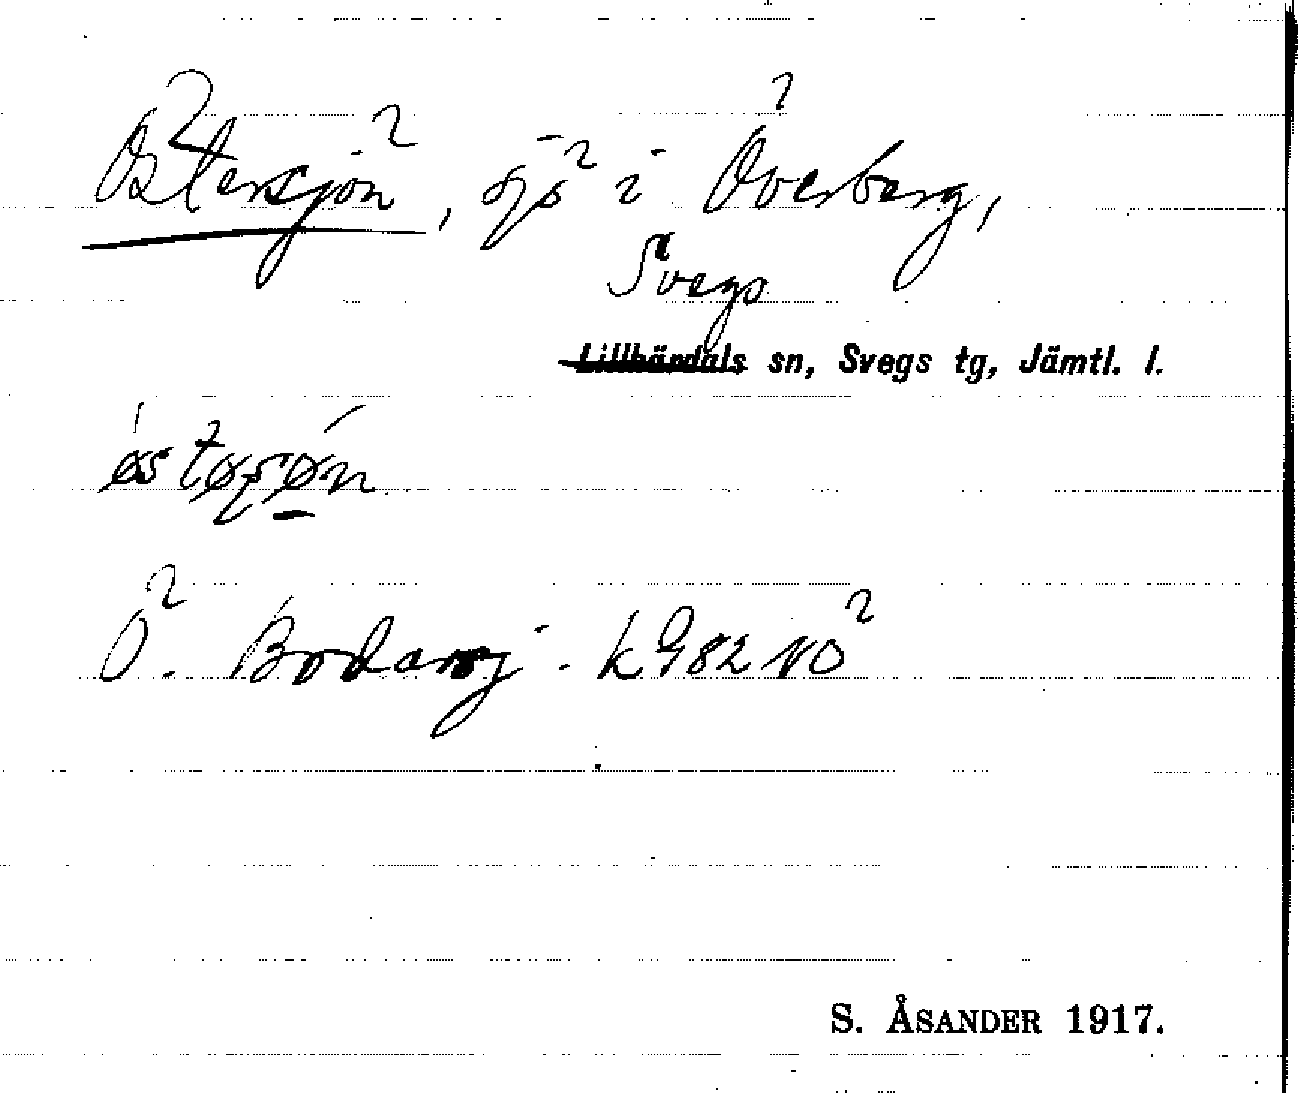 Östersjön, sjö i Överberg,
Svegs
Lillhärdals sn, Svegs tg, Jämtl. l.
Ö. Bodarsj. k 982 NO
S. ÅSANDER 1917.